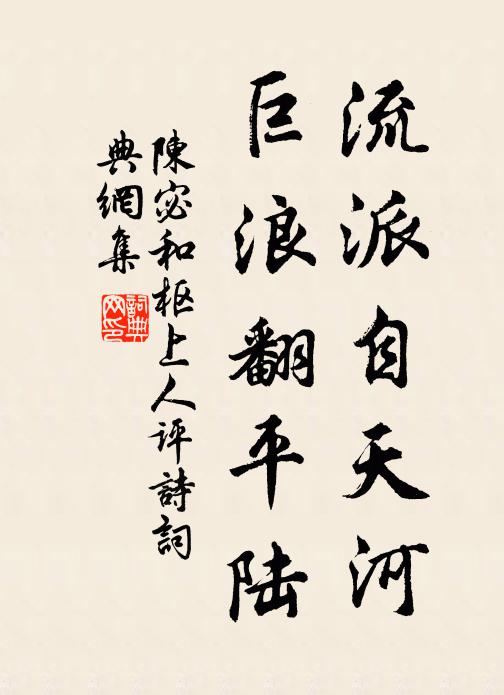 流派自天河
巨浪翻平陆
陳宓和枢上人评詩詞
典網集
詞典
网印